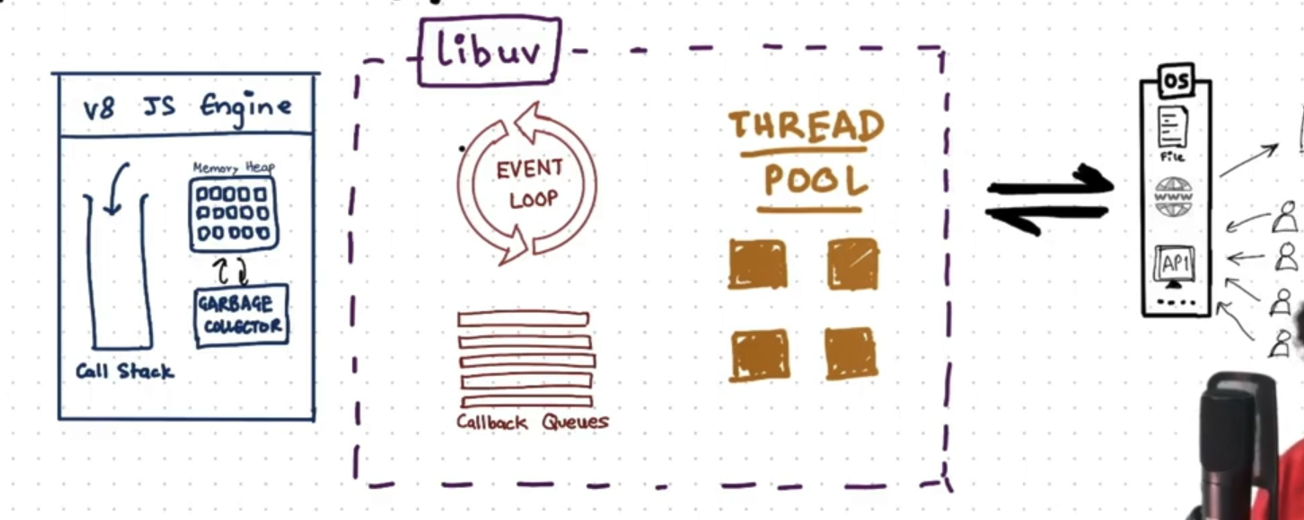 libuv
V8 JS Engine
Memory Heap
GARBAGE
COLLECTOR
Call Stack
EVENT
LOOP
Callback Queues
THREAD
POOL
OS
File
WWW
API